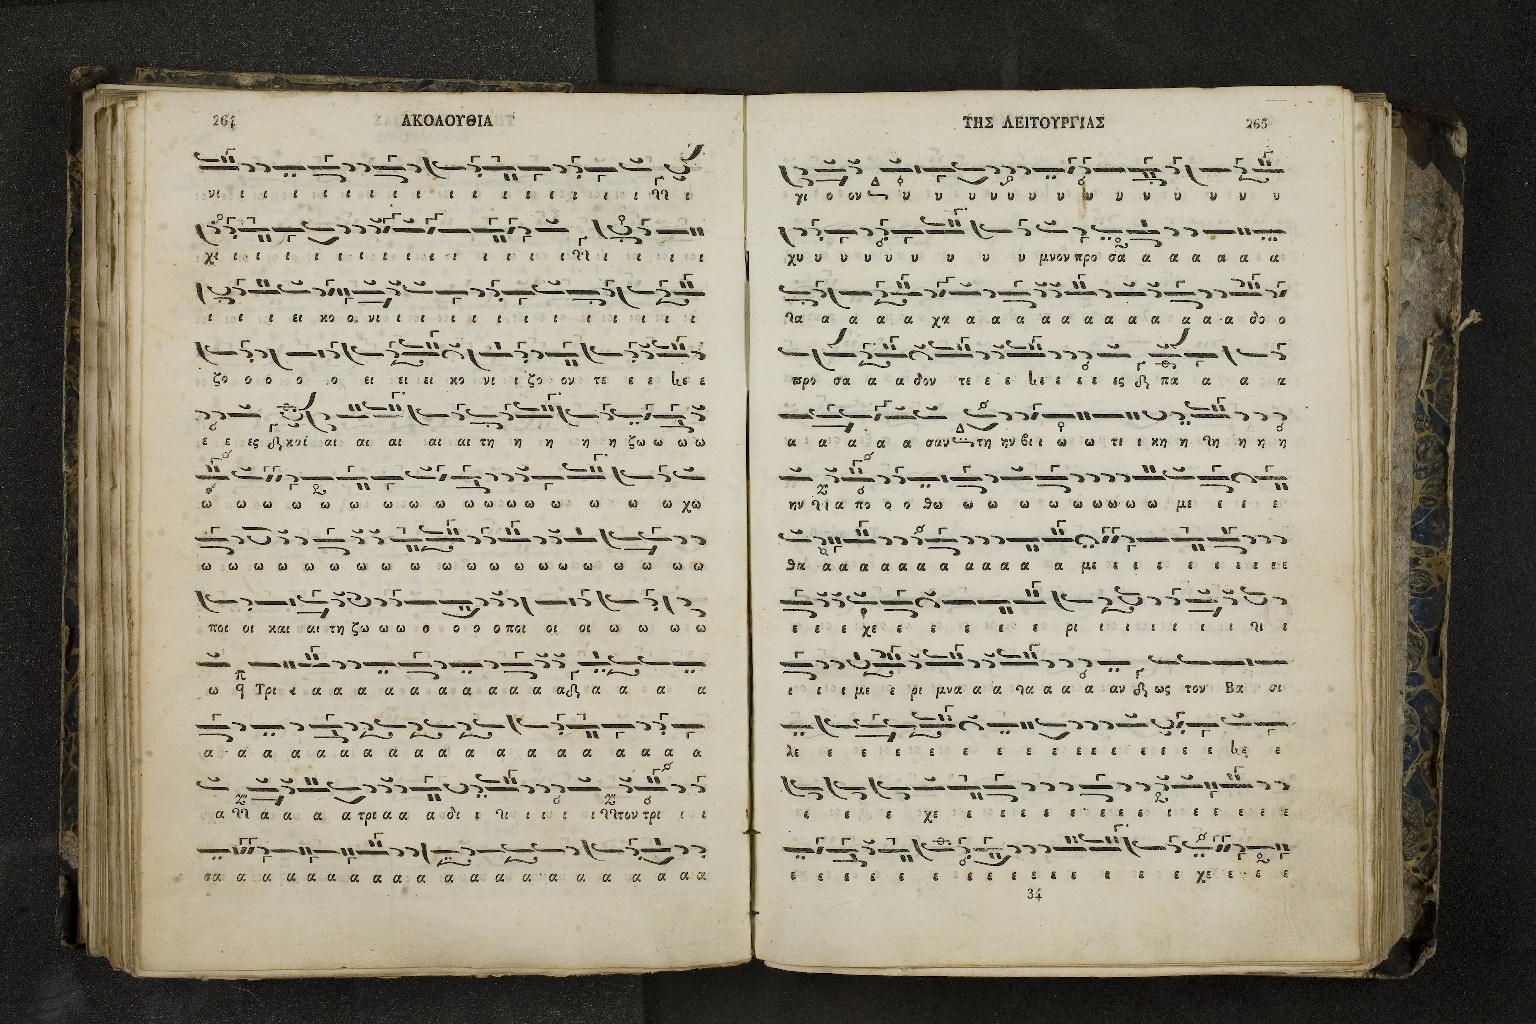 264 ΑΚΟΛΟΥΘΙΑ
νι ι ι ι ι ι ι ι ι ι ι ι ι ι ι ι ι ι
χι ι ι ι ι ι ι ι ι ι ι ι ι ι ι ι ι ι
ι ι ι ει κο ο νι ι ι ι ι ι ι ι ι ι ι ι ι ι
ζο ο ο ο ο ει ει ει κο νι ι ζο ον τε ε ε ε ε
ε ε ες και αι αι αι αι αι τη η η η η ζω ω ω ω
ω ω ω ω ω ω ω ω ω ω ω ω ω ω ω ω ω χω
ω ω ω ω ω ω ω ω ω ω ω ω ω ω ω ω ω ω ω ω
ποι οι και αι τη ζω ω ω ο ο ο ο ποι οι οι ω ω ω ω
ω Τρι ι α α α α α α α α α α α α α α α α α
α α α α α α α α α α α α α α α α α α α α
α α α α α τρι α α α δι ι ι ι ι ι ι τον τρι ι ι
σα α α α α α α α α α α α α α α α α α α α α α
ΤΗΣ ΛΕΙΤΟΥΡΓΙΑΣ 265
γι ο ον υ υ υ υ υ υ υ υ υ υ υ υ υ υ υ
χυ υ υ υ υ υ υ υ υ μνον προ σα α α α α α α
α α α α χα α α α α α α α α α α α α δο ο
προ σα α α δον τε ε ε ε ε ε ε ες πα α α α
α α α α α σαν τη ην βι ι ω ω τι ι κη η η η η
ην α πο ο ο θω ω ω ω ω ω ω ω ω με ε ε ε
θα α α α α α α α α α α α α με ε ε ε ε ε ε ε ε
ε ε ε χε ε ε ε ε ε ρι ι ι ι ι ι ι ι
ι ι ι με ε ρι μνα α α α α α α αν ως τον Βα σι
λε ε ε ε ε ε ε ε ε ε ε ε ε ε ε ε ε ε
ε ε ε χε ε ε ε ε ε ε ε ε ε ε ε ε ε ε ε
ε ε ε ε ε ε ε ε ε ε ε ε ε ε ε χε ε ε ε
34